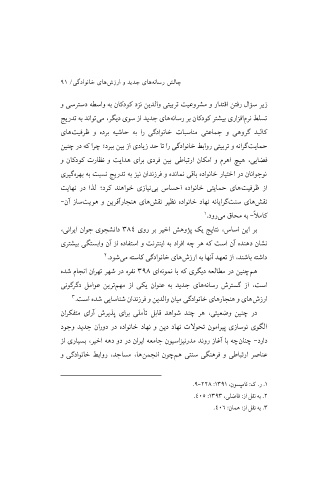 چالش رسانه‌های جدید و ارزش‌های خانوادگی/ ۹۱
زیر سؤال رفتن اقتدار و مشروعیت تربیتی والدین نزد کودکان به واسطه دسترسی و
تسلط نرم‌افزاری بیشتر کودکان بر رسانه‌های جدید از سوی دیگر، می‌تواند به تدریج
کالبد گروهی و جماعتی مناسبات خانوادگی را به حاشیه برده و ظرفیت‌های
حمایت‌گرانه و تربیتی روابط خانوادگی را تا حد زیادی از بین ببرد؛ چرا که در چنین
فضایی، هیچ اهرم و امکان ارتباطی بین فردی برای هدایت و نظارت کودکان و
نوجوانان در اختیار خانواده باقی نمانده و فرزندان نیز به تدریج نسبت به بهره‌گیری
از ظرفیت‌های حمایتی خانواده احساس بی‌نیازی خواهند کرد؛ لذا در نهایت
نقش‌های سنت‌گرایانه نهاد خانواده نظیر نقش‌های هنجارآفرین و هویت‌ساز آن-
کاملاً- به محاق می‌رود.۱
بر این اساس، نتایج یک پژوهش اخیر بر روی ۳۸٤ دانشجوی جوان ایرانی،
نشان دهنده آن است که هر چه افراد به اینترنت و استفاده از آن وابستگی بیشتری
داشته باشند، از تعهد آنها به ارزش‌های خانوادگی کاسته می‌شود.۲
هم‌چنین در مطالعه دیگری که با نمونه‌ای ۳۹۸ نفره در شهر تهران انجام شده
است، از گسترش رسانه‌های جدید به عنوان یکی از مهم‌ترین عوامل دگرگونی
ارزش‌های و هنجارهای خانوادگی میان والدین و فرزندان شناسایی شده است.۳
در چنین وضعیتی، هر چند شواهد قابل تأملی برای پذیرش آرای متفکران
الگوی نوسازی پیرامون تحولات نهاد دین و نهاد خانواده در دوران جدید وجود
دارد- چنان‌چه با آغاز روند مدرنیزاسیون جامعه ایران در دو دهه اخیر، بسیاری از
عناصر ارتباطی و فرهنگی سنتی هم‌چون انجمن‌ها، مساجد، روابط خانوادگی و
۱. ر. ک: تامپسون، ۱۳۹۱: ۲۲۸-۹.
۲. به نقل از: فاضلی، ۱۳۹۳: ٤٠٥.
۳. به نقل از: همان: ٤٠٦.